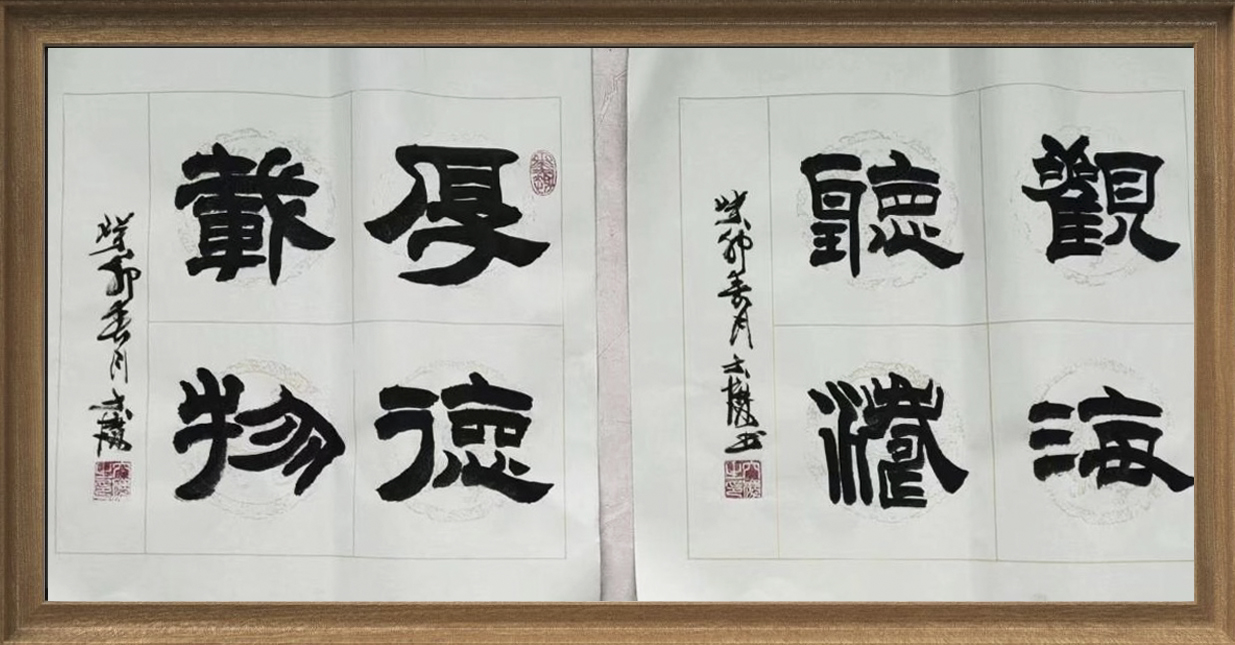 觀海
聽濤
癸卯春月 书
厚德
載物
癸卯春月